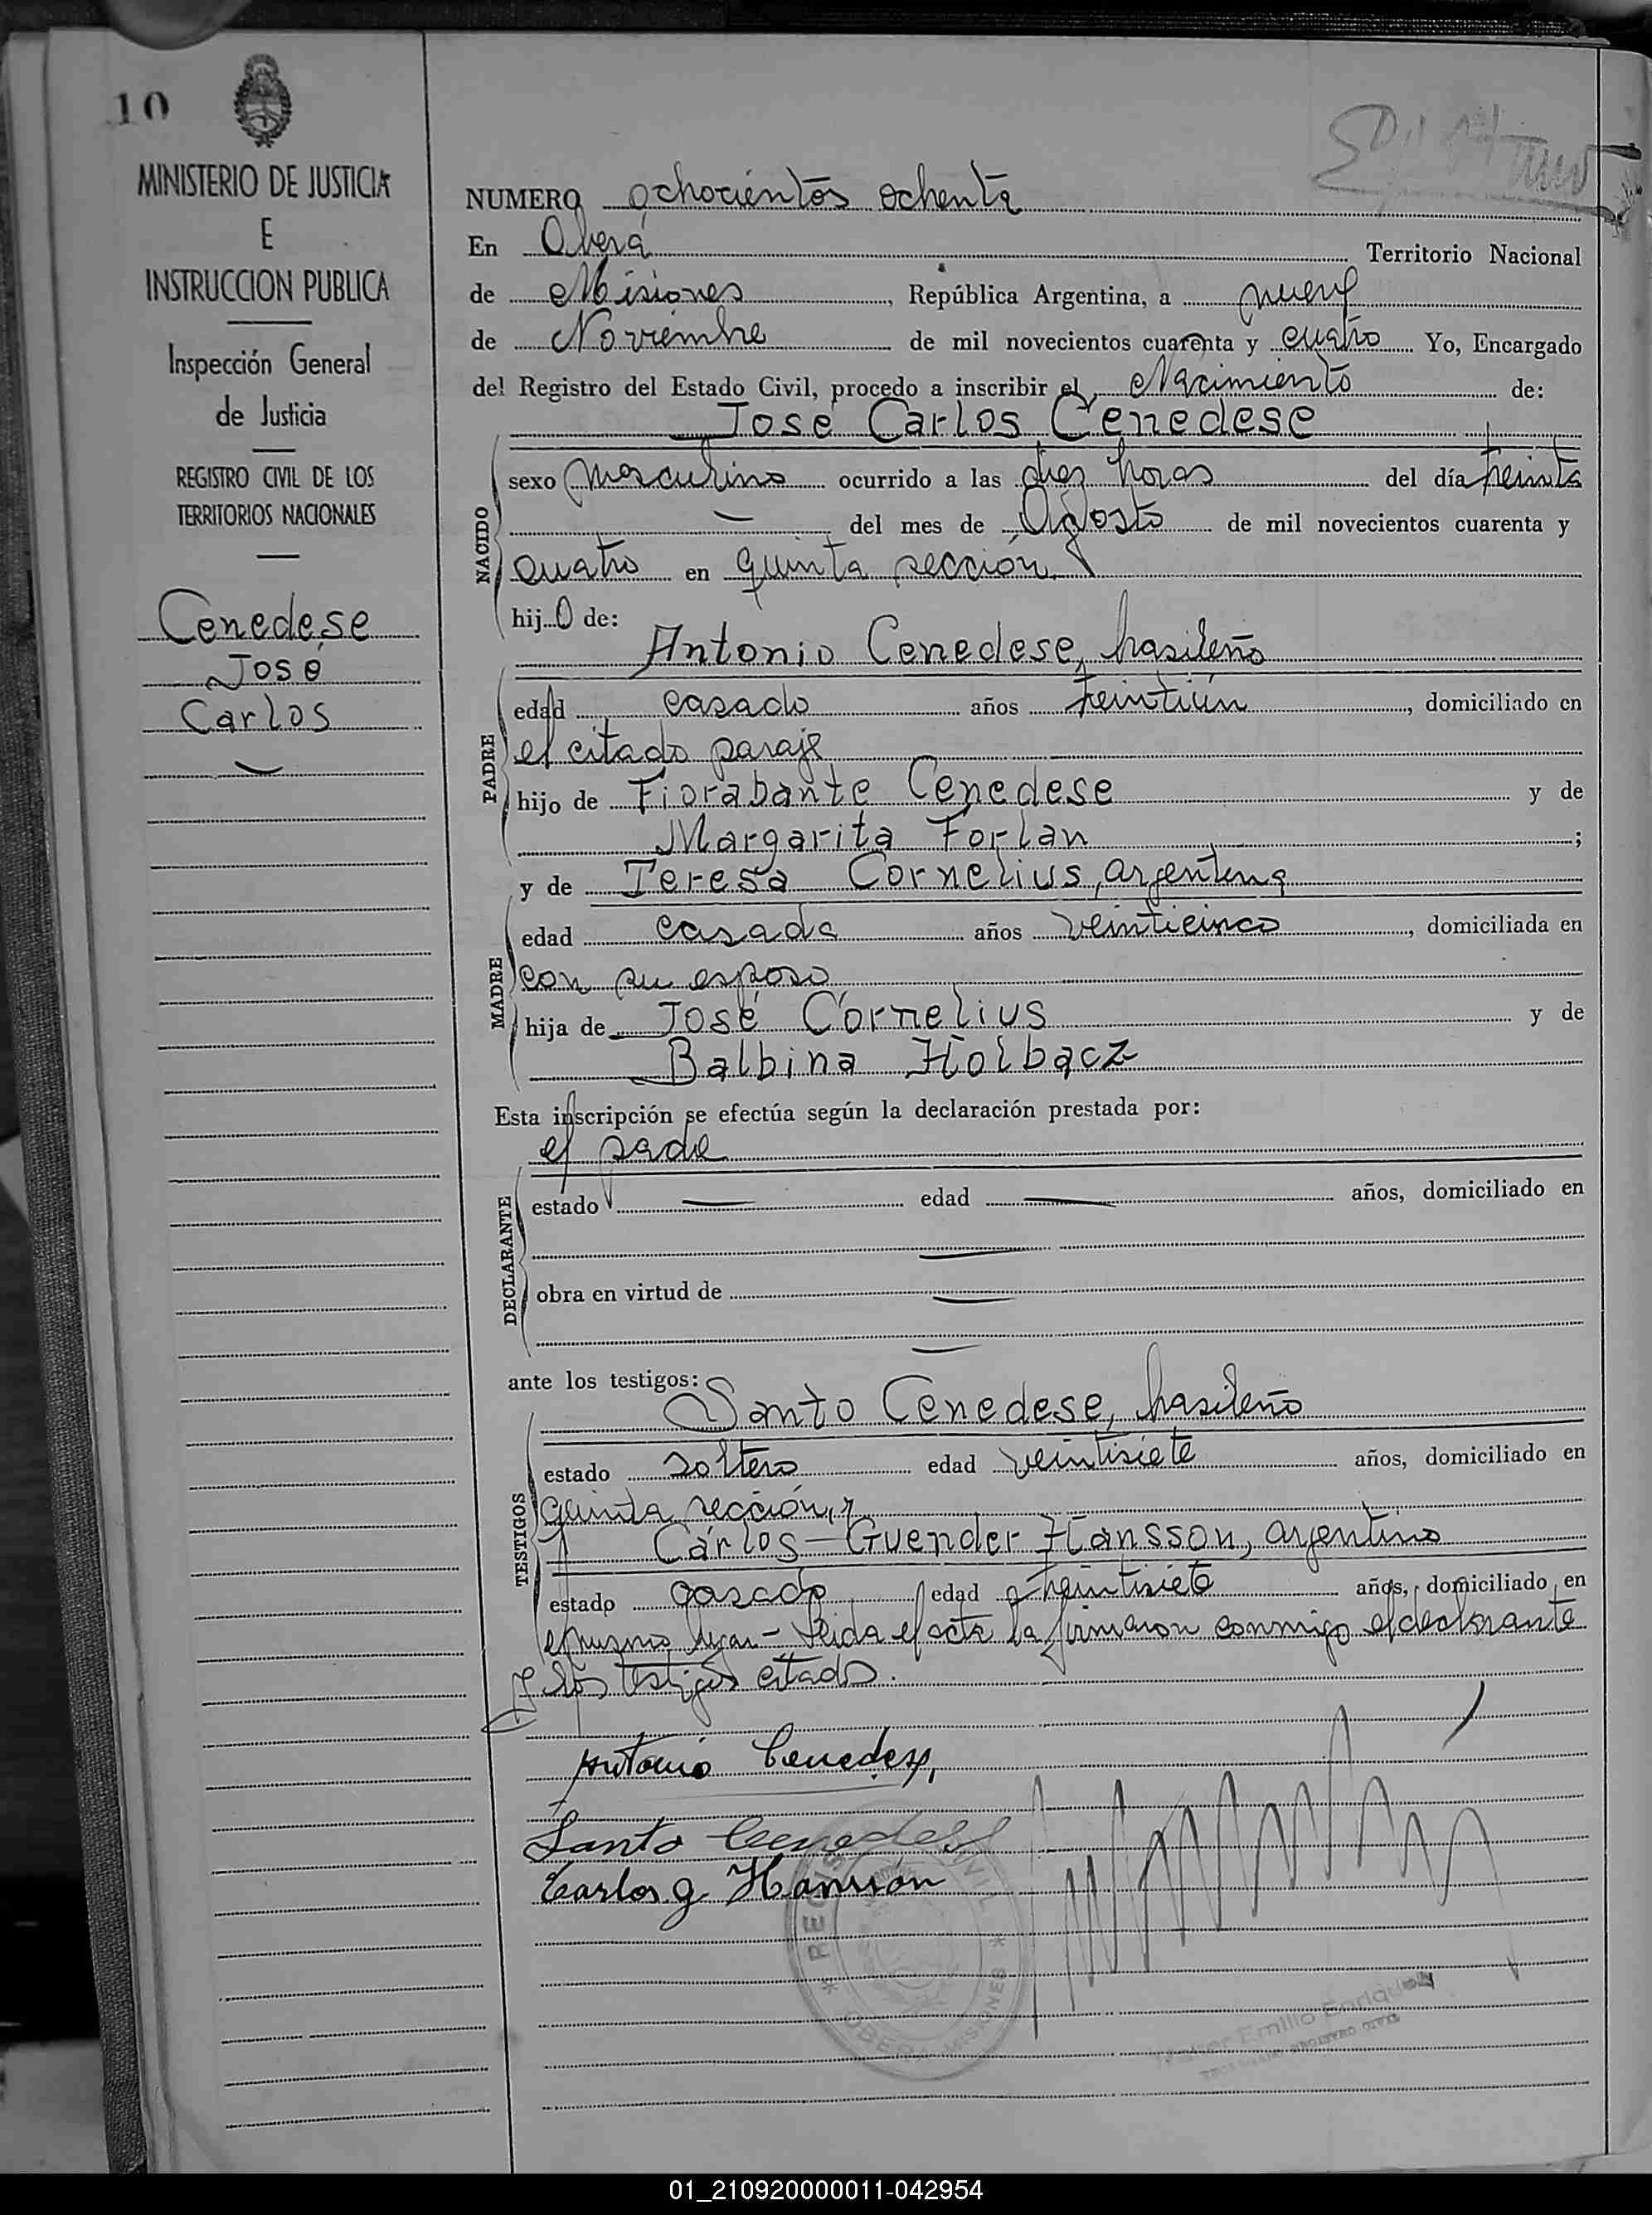 10
MINISTERIO DE JUSTICIA
E
INSTRUCCION PUBLICA
Inspección General
de Justicia
REGISTRO CIVIL DE LOS
TERRITORIOS NACIONALES
Cenedese
José
Carlos
NUMERO ochocientos ochenta
En Oberá Territorio Nacional
de Misiones, República Argentina, a nueve
de Noviembre de mil novecientos cuarenta y cuatro Yo, Encargado
del Registro del Estado Civil, procedo a inscribir el Nacimiento de:
José Carlos Cenedese
NACIDO
sexo masculino ocurrido a las diez horas del día treinta
— del mes de Agosto de mil novecientos cuarenta y
cuatro en quinta sección
hijo de:
Antonio Cenedese, brasileño
PADRE
edad casado años treintiún, domiciliado en
el citado paraje
hijo de Fiorabante Cenedese y de
Margarita Forlan;
y de Teresa Cornelius, argentina
MADRE
edad casada años veinticinco, domiciliada en
con su esposo
hija de José Cornelius y de
Balbina Holbacz
Esta inscripción se efectúa según la declaración prestada por:
el padre
DECLARANTE
estado — edad — años, domiciliado en
—
obra en virtud de —
—
ante los testigos:
Santo Cenedese, brasileño
TESTIGOS
estado soltero edad veintisiete años, domiciliado en
quinta sección, y
Carlos—Guender Hansson, argentino
estado casado edad treintisiete años, domiciliado en
el mismo lugar- Leida el acta la firmaron conmigo el declarante
y los testigos citados.
Antonio Cenedese
Santo Cenedese
Carlos g Hansson
* REGISTRO CIVIL *
OBERA MISIONES
Emilio Enriquez
REGISTRO CIVIL
01_210920000011-042954